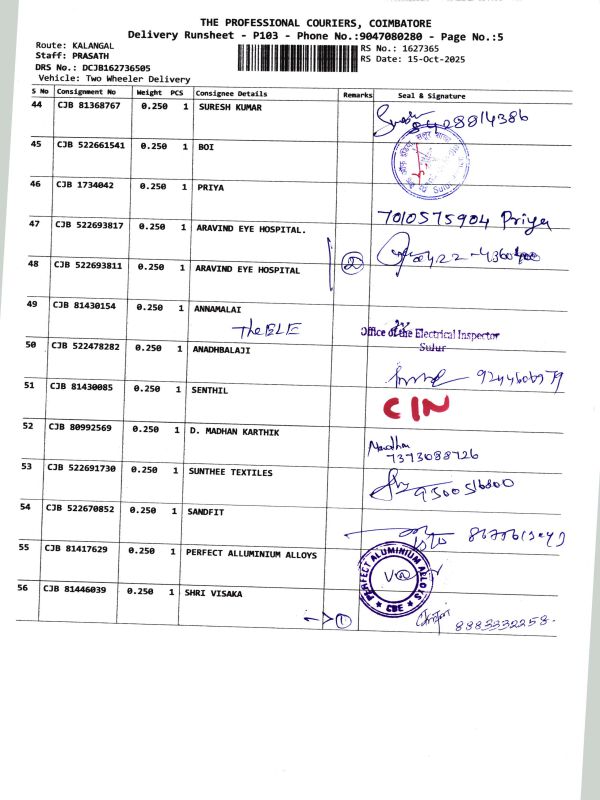 THE PROFESSIONAL COURIERS, COIMBATORE
Delivery Runsheet - P103 - Phone No.:9047080280 - Page No.:5
Route: KALANGAL
Staff: PRASATH
DRS No.: DCJB162736505
Vehicle: Two Wheeler Delivery
RS No.: 1627365
RS Date: 15-Oct-2025
S No Consignment No Weight PCS Consignee Details Remarks Seal & Signature
44 CJB 81368767 0.250 1 SURESH KUMAR
45 CJB 522661541 0.250 1 BOI
46 CJB 1734042 0.250 1 PRIYA
7010575904 Priya
47 CJB 522693817 0.250 1 ARAVIND EYE HOSPITAL.
2
48 CJB 522693811 0.250 1 ARAVIND EYE HOSPITAL
49 CJB 81430154 0.250 1 ANNAMALAI
The ELE
Office of the Electrical Inspector
Sulur
50 CJB 522478282 0.250 1 ANADHBALAJI
51 CJB 81430085 0.250 1 SENTHIL
CIN
52 CJB 80992569 0.250 1 D. MADHAN KARTHIK
Madhan
7373088726
53 CJB 522691730 0.250 1 SUNTHEE TEXTILES
9500516800
54 CJB 522670852 0.250 1 SANDFIT
55 CJB 81417629 0.250 1 PERFECT ALLUMINIUM ALLOYS
PERFECT ALUMINIUM ALLOYS
CBE
56 CJB 81446039 0.250 1 SHRI VISAKA
1
8883332258